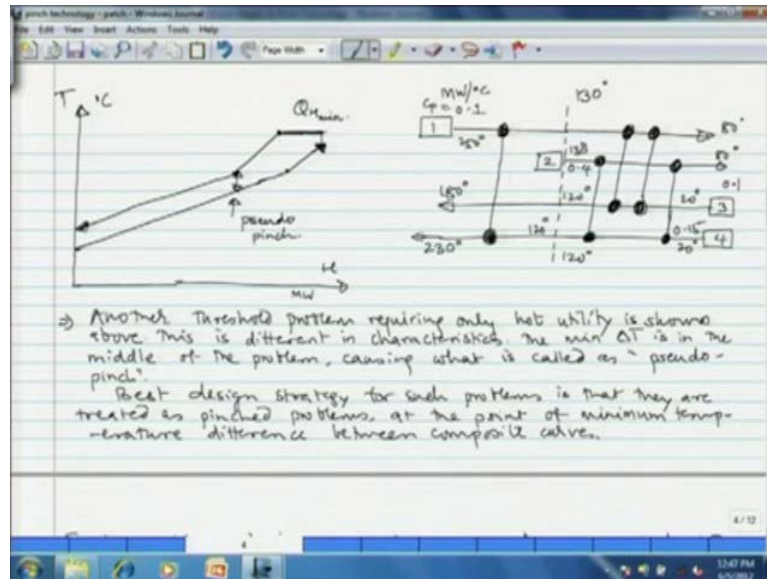 pinch technology - patch - Windows Journal
File Edit View Insert Actions Tools Help
Page Width
T °C
QHmin.
pseudo
pinch.
H
MW
MW/°C
Cp = 0.1
130°
1
250°
80°
2
130
0.4
80°
0.1
180°
120°
20°
3
230°
120°
120°
0.15
20°
4
⇒ Another threshold problem requiring only hot utility is shown
above. This is different in characteristics. The min ΔT is in the
middle of the problem, causing what is called as "pseudo-
pinch".
Best design strategy for such problems is that they are
treated as pinched problems, at the point of minimum temp-
-erature difference between composite curves.
4/12
12:47 PM
6/5/2012